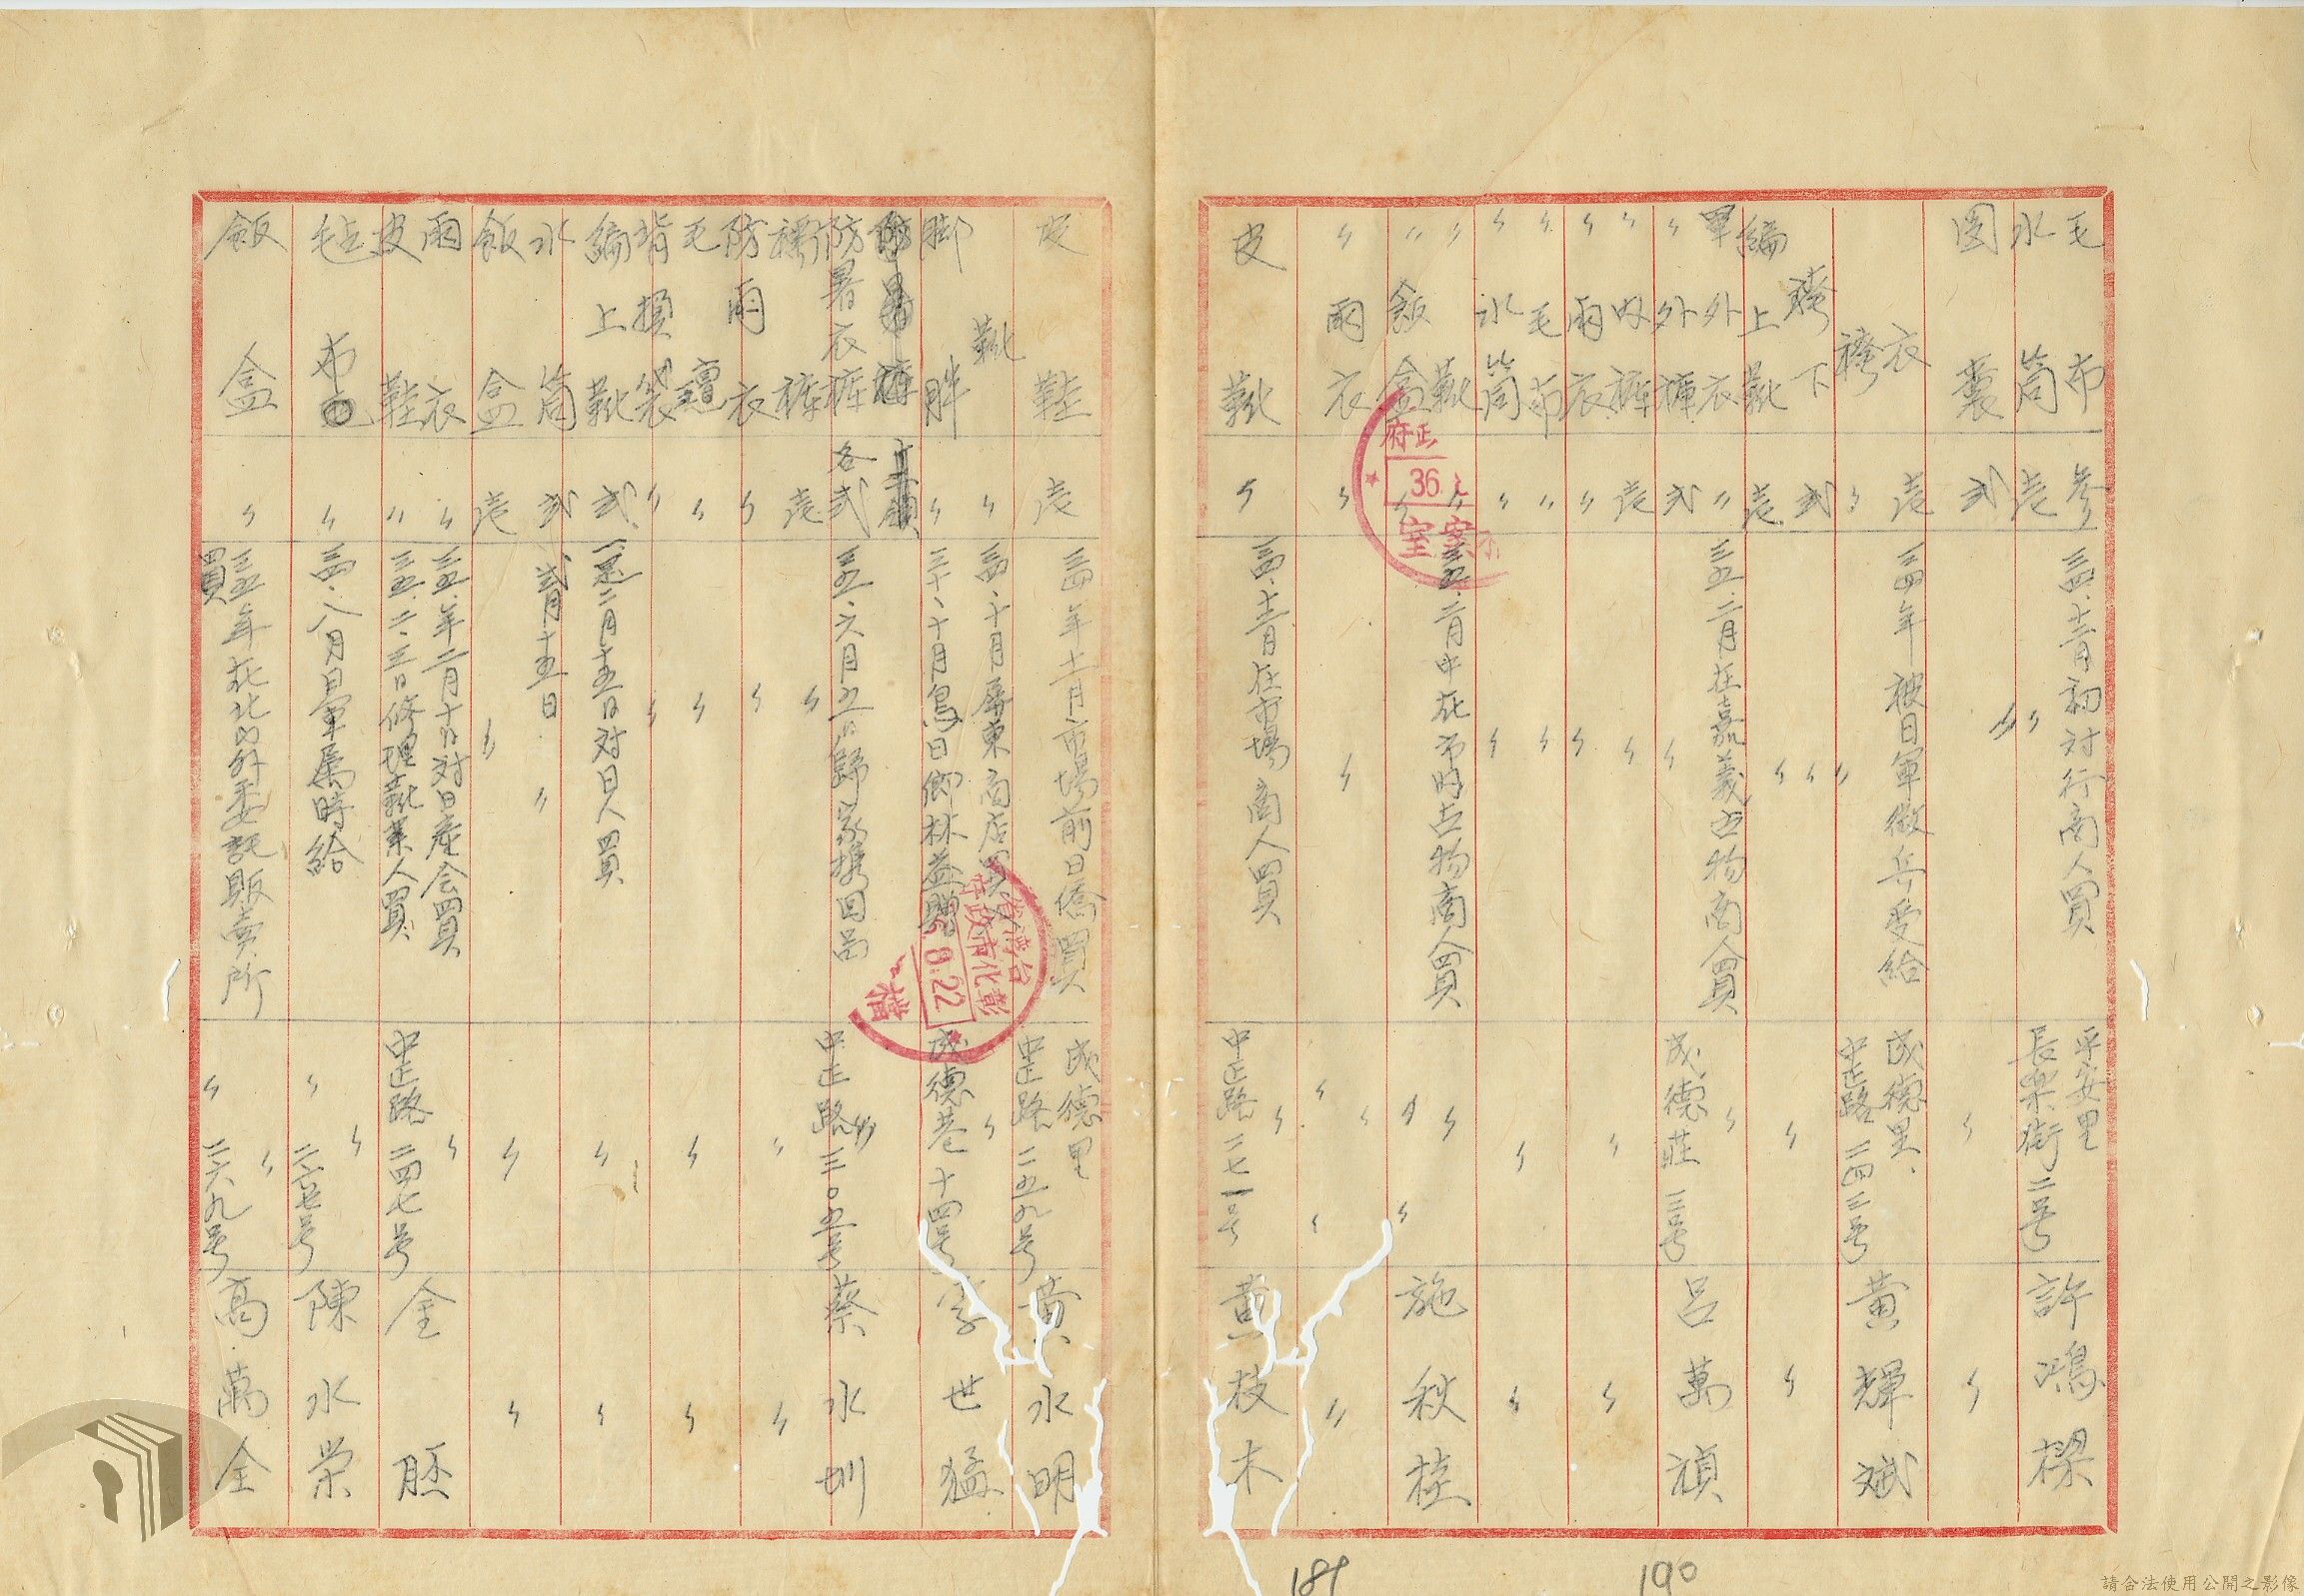 毛布 参 三四、十二月初対行商人買 平安里長樂街二号 許鴻樑
水筒 壱 〃
図嚢 弐 〃 〃 〃
衣 壱 三四年被日軍徴兵受給 成德里、中正路二四三号 黄輝斌
袴 〃 〃
袴下 弐 〃
編上靴 壱 〃 〃 〃
軍外衣 〃 三五、二月在嘉義古物商人買 〃
〃外褲 弐 〃 成德莊三号 呂萬禎
〃内褲 壱 〃
〃雨衣 〃 〃 〃 〃
〃毛布 〃 〃
〃水筒 〃 〃 〃 〃
〃靴 〃 三五、二月中在市時古物商人買 〃
〃飯盒 〃 〃 施秋桂
〃雨衣 〃 〃 〃 〃
皮靴 〃 三四、十二月在市場商人買 中正路二七一号 黄枝木
皮鞋 壱 三四年十二月市場前日僑買 成德里中正路二五九号 黄永明
靴 〃 三四、十月屏東商店買 〃
脚絆 〃 三十、十月烏日鄉林益贈 成德巷十四号 李世猛
防暑衣褲 各弐 三五、六月五日歸家携回 中正路三〇五号 蔡水圳
褲 壱 〃
防雨衣 〃 〃 〃 〃
毛氈 〃 〃 〃 〃
背損袋 〃 〃
編上靴 弐 二月十五日対日人買 〃 〃
水筒 弐 弐月十五日 〃
飯盒 壱 〃 〃 〃
雨衣 〃 三五、年二月十日対日產会買 〃
皮鞋 〃 三五、二、三日修理靴業人買 中正路二四七号 金胚
毡布 〃 三四、八月日軍屬時給 〃 二六七号 陳水栄
飯盒 〃 三五年在北門外委託販賣所買 〃 二六九号 高萬全
府政
36
室案
台灣省
彰化市政府
8.22
檔
189
190
請合法使用公開之影像